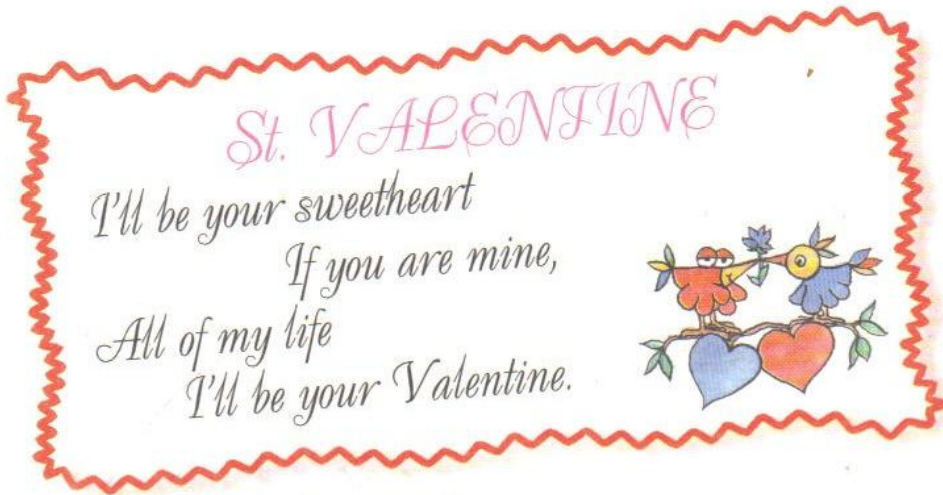 St. VALENTINE
I'll be your sweetheart
If you are mine,
All of my life
I'll be your Valentine.